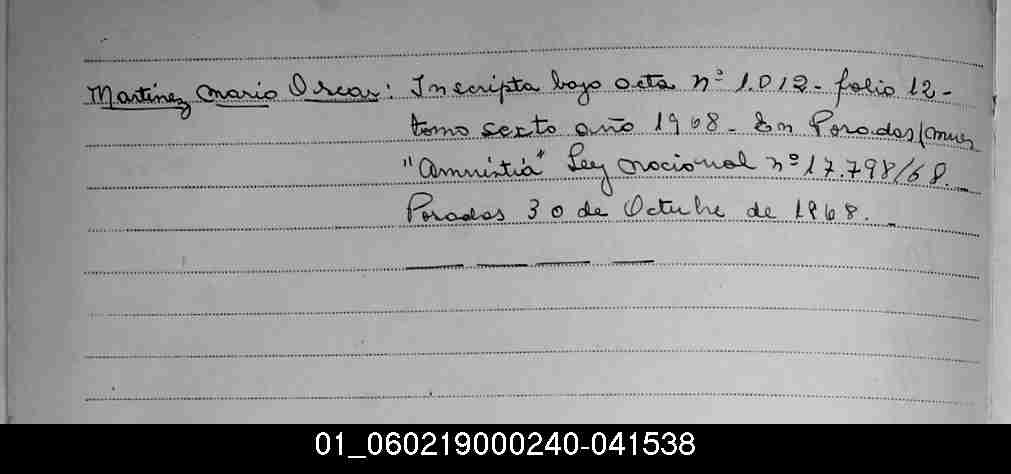 Martinez Mario Oscar: Inscripta bajo acta nº 1.012- folio 12-
tomo sexto año 1968- En Posadas/mnes
"Amnistiá" Ley nacional nº 17.798/68.-
Posadas 30 de Octubre de 1968.-
01_060219000240-041538